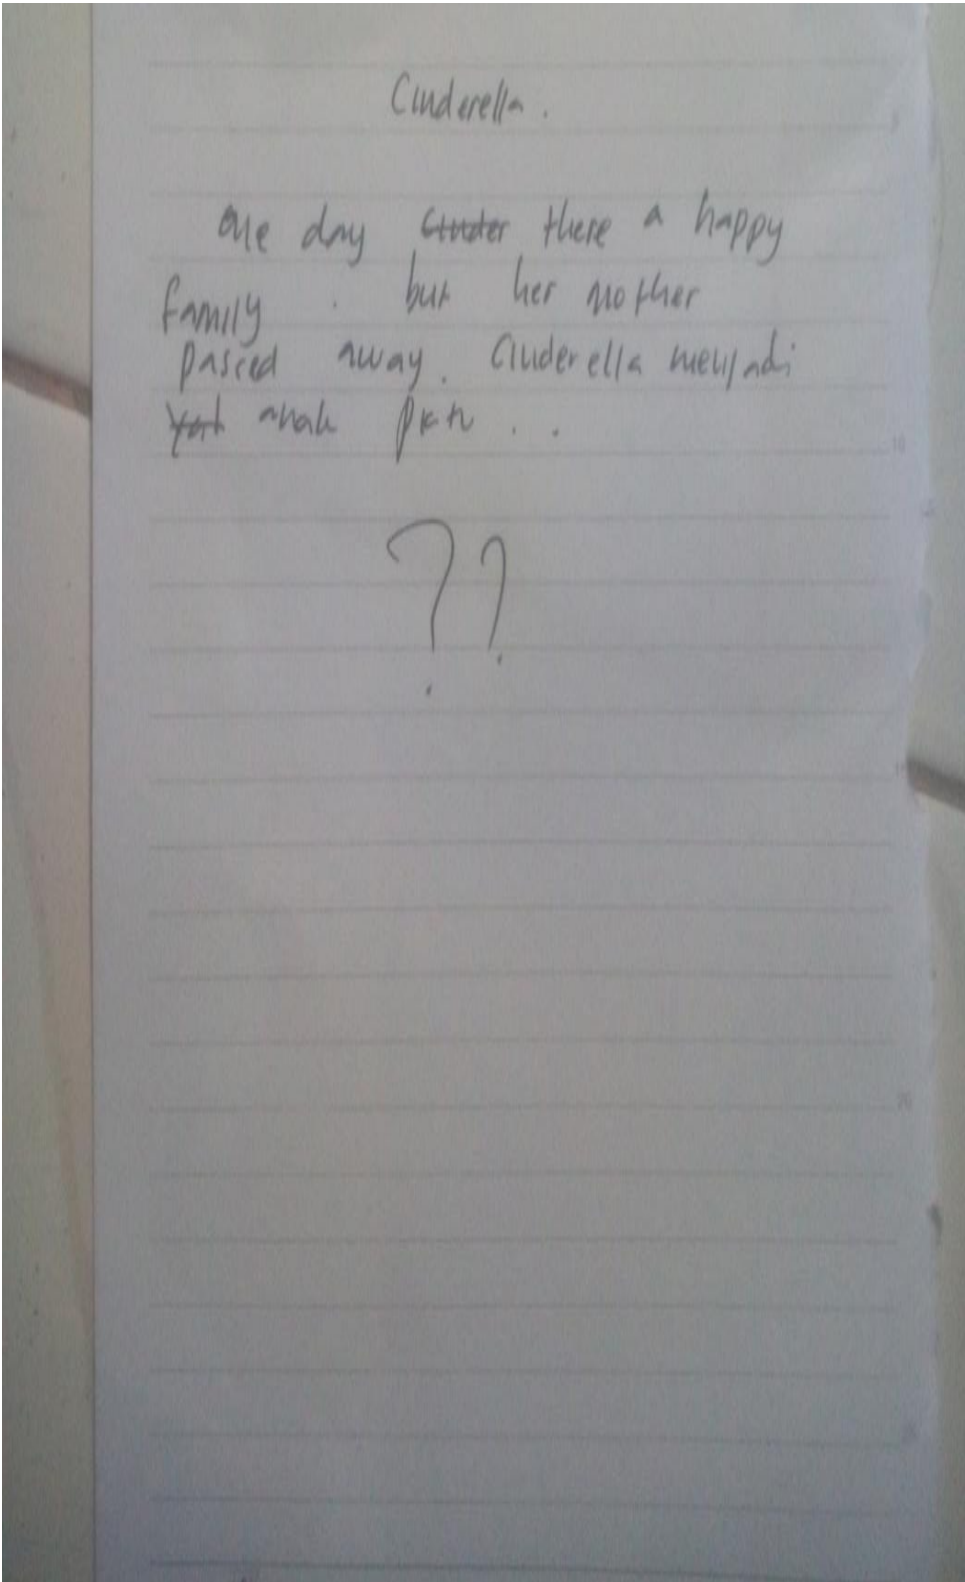 Cinderella.
One day Cinder there a happy
family . but her mother
passed away. Cinderella menjadi
anak . .
??